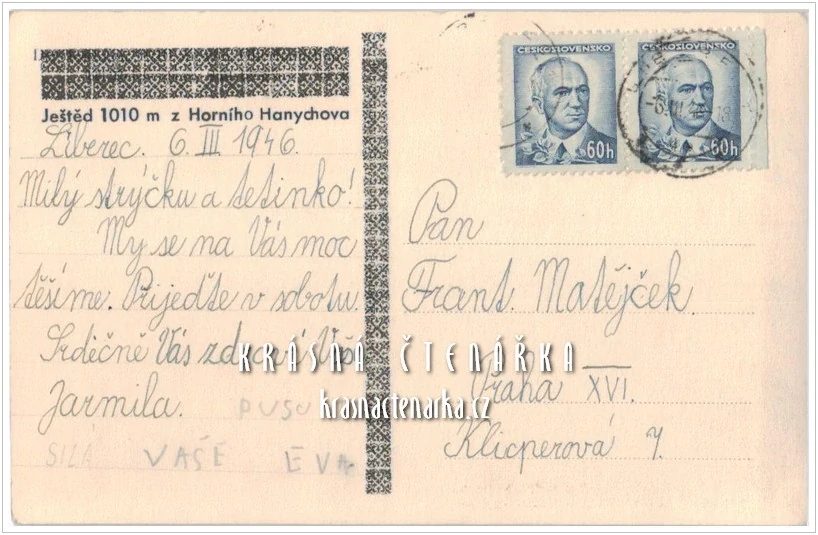 Ještěd 1010 m z Horního Hanychova
Liberec. 6. III 1946.
Milý strýčku a tetinko!
My se na Vás moc
těšíme. Přijeďte v sobotu.
Srdečně Vás zdraví Vaše
Jarmila. PUSU
SILÁ VAŠE EVA
ČESKOSLOVENSKO
60h
ČESKOSLOVENSKO
60h
Pan
Frant. Matějček
Praha XVI.
Klicperová 7.
KRÁSNÁ ČTENÁŘKA
krasnactenarka.cz